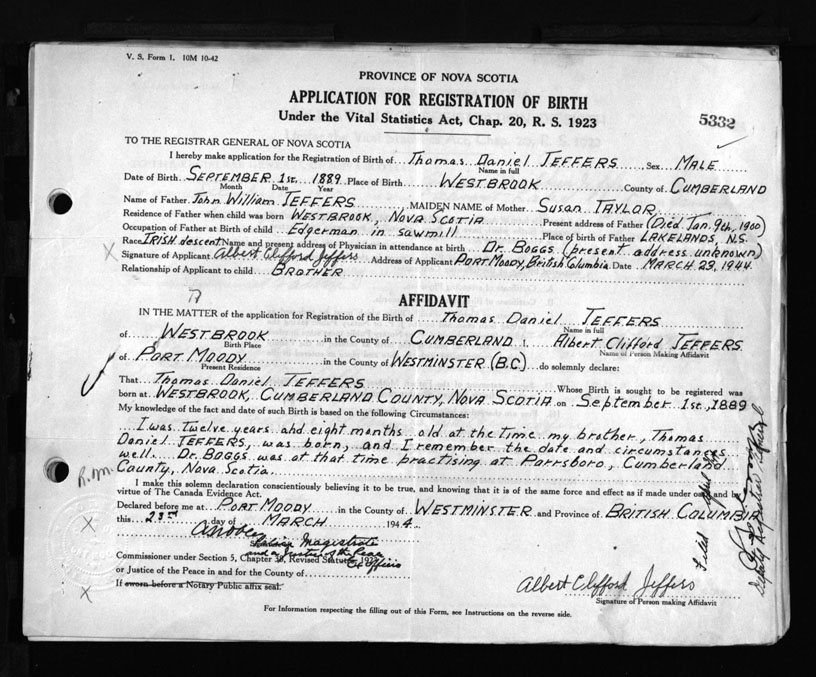 V. S. Form 1. 10M 10-42
PROVINCE OF NOVA SCOTIA
APPLICATION FOR REGISTRATION OF BIRTH
Under the Vital Statistics Act, Chap. 20, R. S. 1923
5332
TO THE REGISTRAR GENERAL OF NOVA SCOTIA
I hereby make application for the Registration of Birth of Thomas Daniel JEFFERS, Sex MALE
Name in full
Date of Birth SEPTEMBER 1st. 1889 Place of Birth WESTBROOK County of CUMBERLAND
Month Date Year
Name of Father John William JEFFERS MAIDEN NAME of Mother Susan TAYLOR
Residence of Father when child was born WESTBROOK, NOVA SCOTIA Present address of Father (Died Jan. 9th, 1900)
Occupation of Father at Birth of child Edgerman in sawmill Place of birth of Father LAKELANDS, N.S.
Race IRISH descent Name and present address of Physician in attendance at birth Dr. BOGGS (present address unknown)
X Signature of Applicant Albert Clifford Jeffers Address of Applicant PORT MOODY, British Columbia Date MARCH 23, 1944.
Relationship of Applicant to child BROTHER
AFFIDAVIT
IN THE MATTER of the application for Registration of the Birth of Thomas Daniel JEFFERS
Name in full
of WESTBROOK in the County of CUMBERLAND I Albert Clifford JEFFERS
Birth Place Name of Person Making Affidavit
of PORT MOODY in the County of WESTMINSTER (B.C.) do solemnly declare:
Present Residence
That Thomas Daniel JEFFERS Whose Birth is sought to be registered was
born at WESTBROOK, CUMBERLAND COUNTY, NOVA SCOTIA on September 1st., 1889
My knowledge of the fact and date of such Birth is based on the following Circumstances:
I was twelve years and eight months old at the time my brother, Thomas
Daniel JEFFERS, was born, and I remember the date and circumstances
well. Dr. BOGGS was at that time practising at Parrsboro, Cumberland
County, Nova Scotia.
R.M.
I make this solemn declaration conscientiously believing it to be true, and knowing that it is of the same force and effect as if made under oath and in
virtue of The Canada Evidence Act.
Declared before me at PORT MOODY in the County of WESTMINSTER and Province of BRITISH COLUMBIA
this 23rd day of MARCH 1944.
X
Magistrate
and a Justice of the Peace
Ex Officio
Commissioner under Section 5, Chapter 38, Revised Statutes, 1923
or Justice of the Peace in and for the County of
If sworn before a Notary Public affix seal.
X
Albert Clifford Jeffers
Signature of Person making Affidavit
For Information respecting the filling out of this Form, see Instructions on the reverse side.
Filed April
Deputy Registrar General